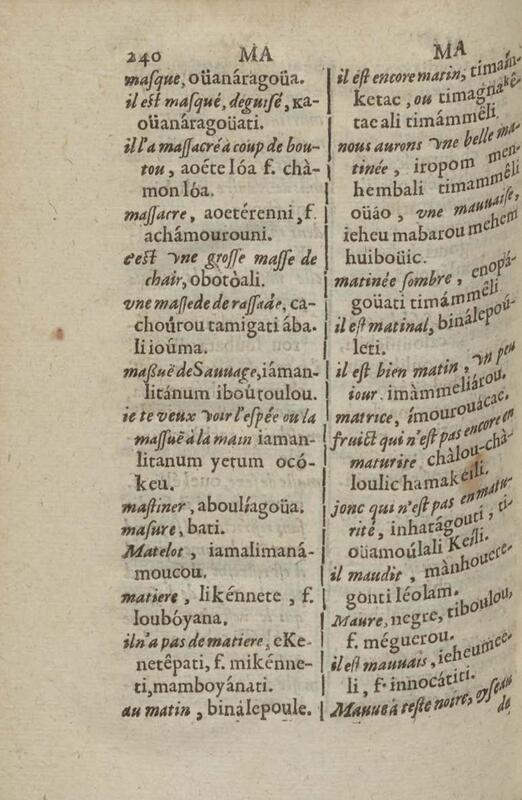 240 MA
maſque, oüanáragoüa.
il eſt maſqué, deguiſé, ĸa-
oüanáragoüati.
il l'a maſſacré à coup de bou-
tou, aoéte lóa f. chà-
mon lóa.
maſſacre, aoetérenni, f.
achámourouni.
c'est vne groſſe maſſe de
chair, obotòali.
vne maſſe de de raſſade, ca-
choûrou tamigati ába-
li ioúma.
maſsuë de Sauuage, iáman-
litánum iboútoulou.
ie te veux voir l'eſpée ou la
maſſuë à la main iaman-
litanum yetum ocó-
keu.
maſtiner, aboulíagoüa.
maſure, bati.
Matelot, iamalimaná-
moucou.
matiere, likénnete, f.
loubóyana.
il n'a pas de matiere, eKe-
netêpati, f. mikénne-
ti, mamboyánati.
au matin, binálepoule.
MA
il eſt encore matin, timain-
ketac, ou timagnakê-
tac ali timámmêli.
nous aurons vne belle ma-
tinée, iropom men-
hembali timammêli
oüáo, vne mauuaiſe,
ieheu mabarou mehem
huiboüic.
matinée ſombre, enopá-
goüati timámmêli.
il eſt matinal, binálepoú-
leti.
il est bien matin, vn peu
iour. imàmmeliárou.
matrice, ímourouácac.
fruict qui n'eſt pas encore en
maturite chàlou-chà-
loulic hamakéili.
jonc qui n'eſt pas en matu-
rité, inhatágouti, ti-
oüamoúlali Keíli.
il maudit, mànhouere-
gonti léolam.
Maure, negre, tiboulou,
f. méguerou.
il eſt mauuais, ieheumee-
li, f. innocátiti.
Mauue à teſte noire, oyſeau
de